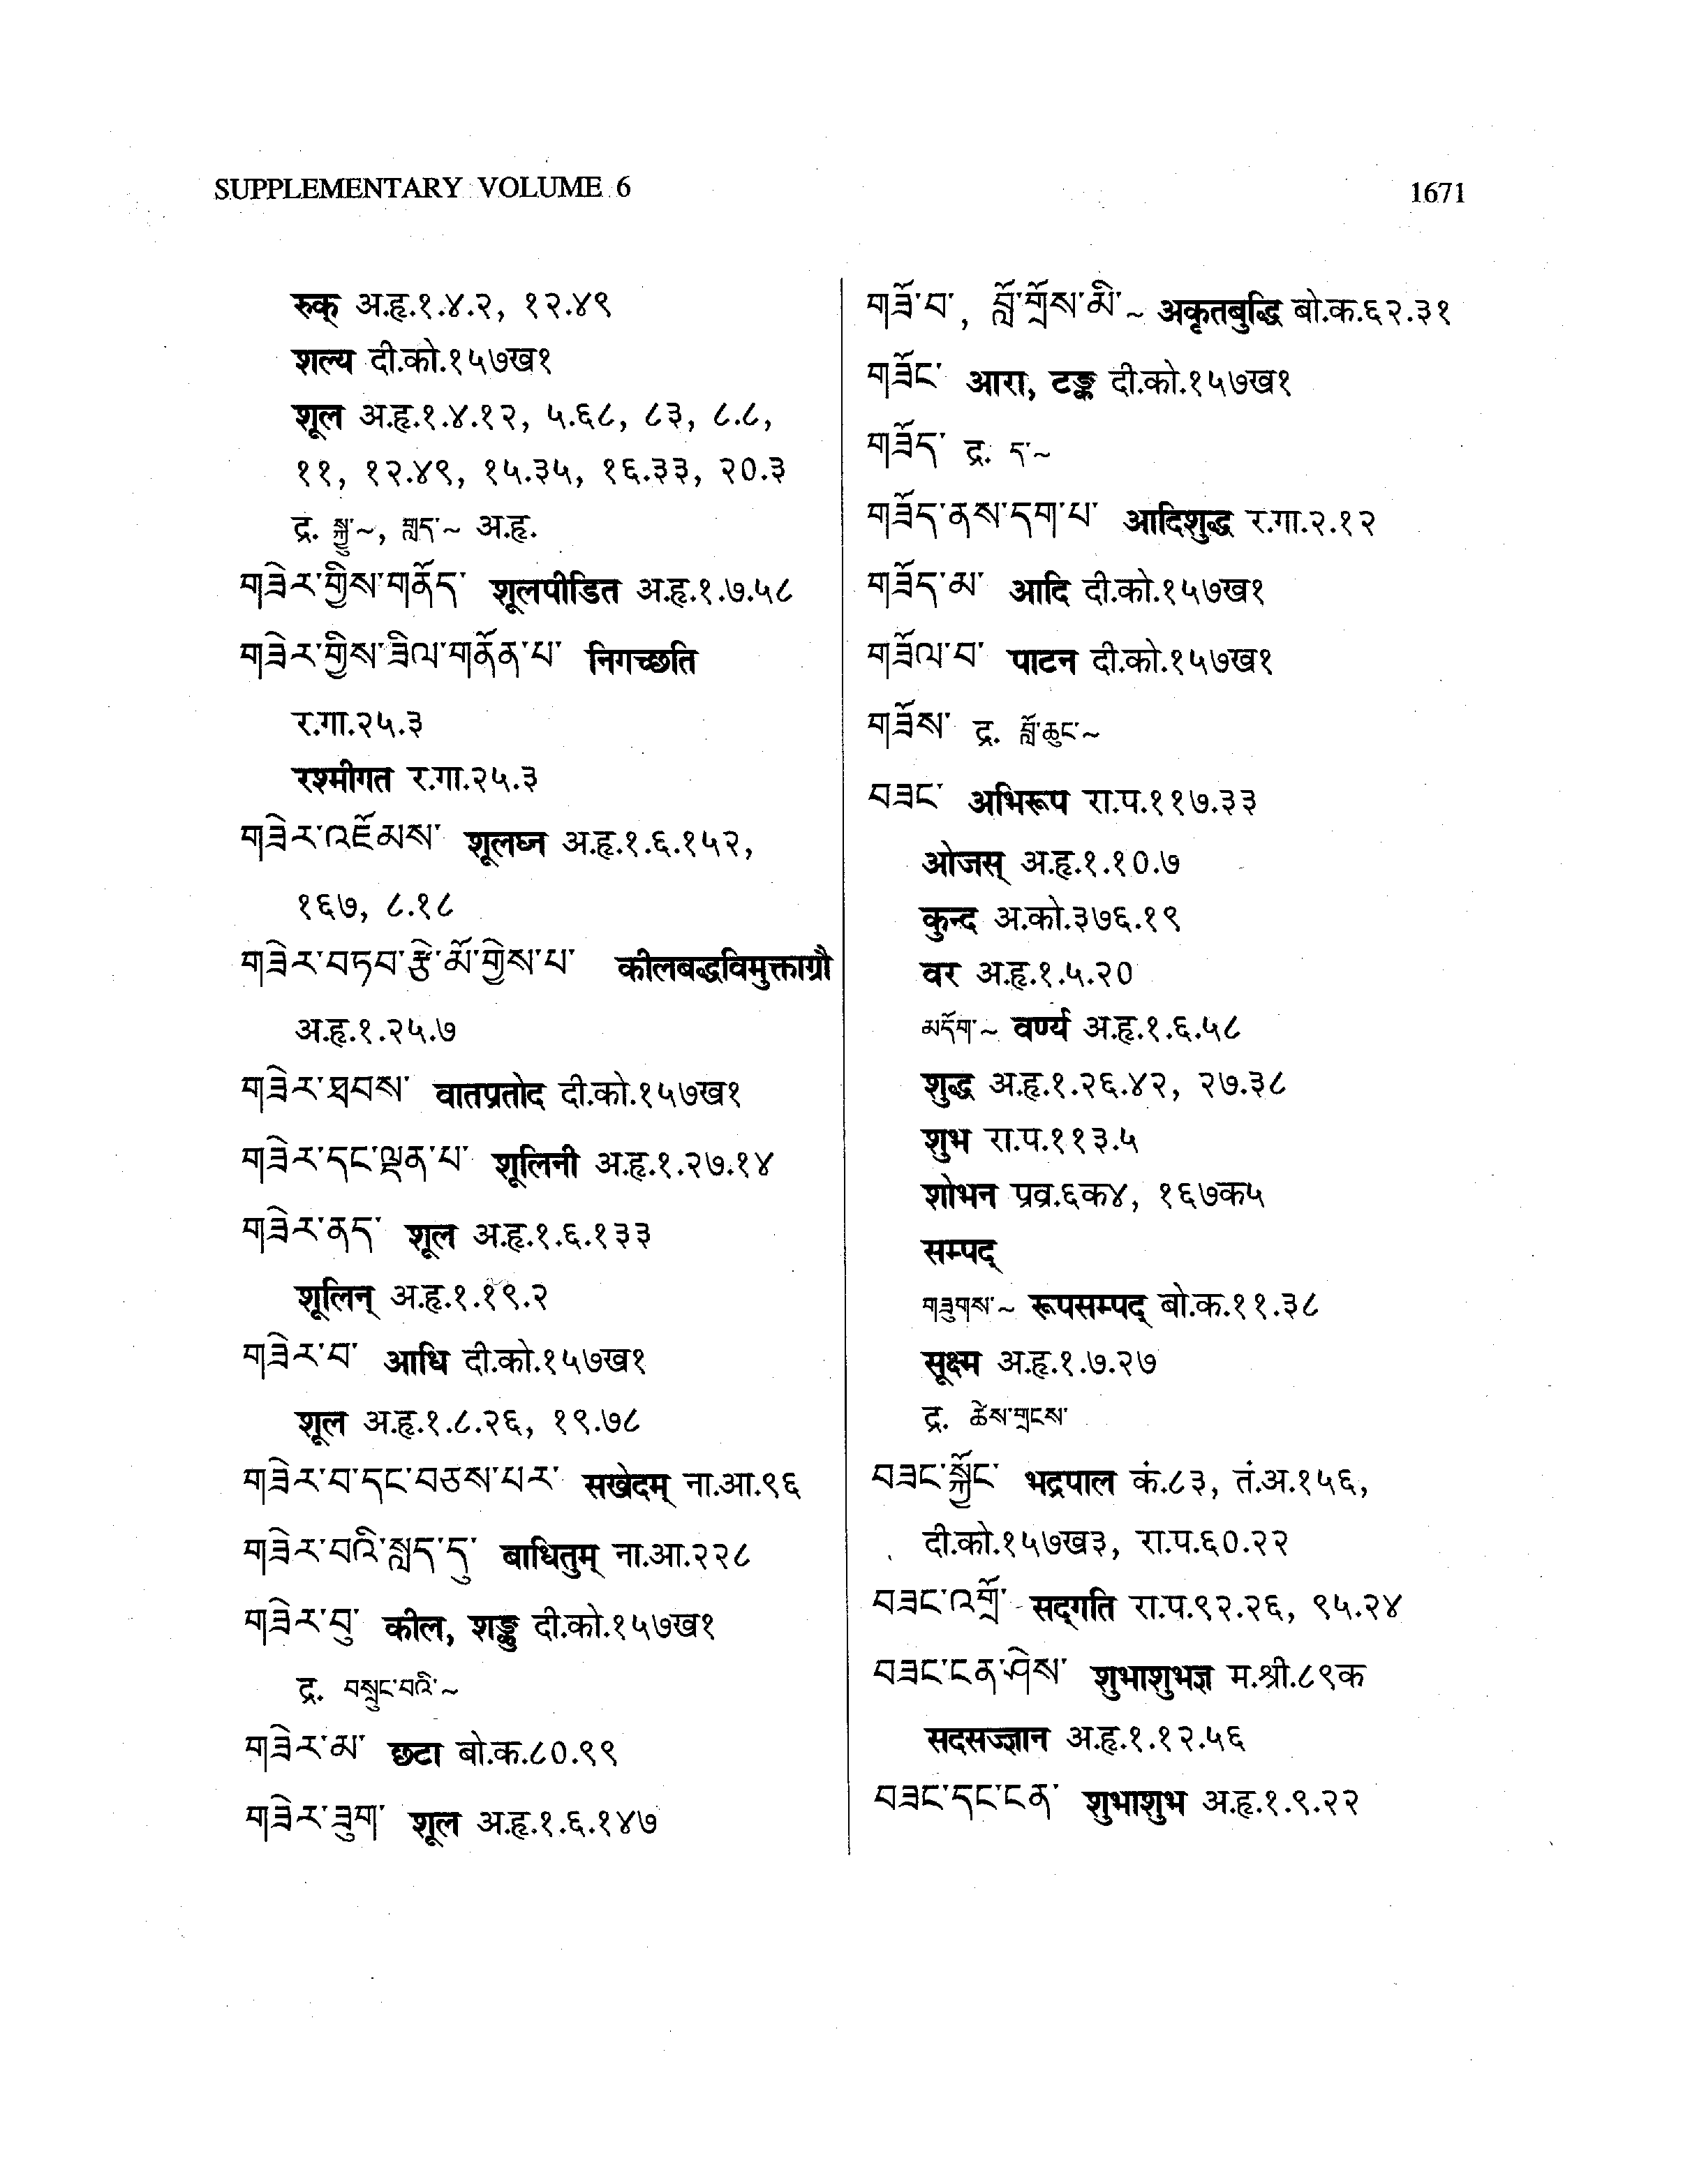 SUPPLEMENTARY VOLUME 6
1671
रुक् अ.हृ.१.४.२, १२.४९
शल्य दी.को.१५७ख१
शूल अ.हृ.१.४.१२, ५.६८, ८३, ८.८,
११, १२.४९, १५.३५, १६.३३, २०.३
द्र. སྐྱུ་~, ཀླད་~ अ.हृ.
གཟེར་གྱིས་གནོད་ शूलपीडित अ.हृ.१.७.५८
གཟེར་གྱིས་ཟིལ་གནོན་པ་ निगच्छति
र.गा.२५.३
रश्मीगत र.गा.२५.३
གཟེར་འཇོམས་ शूलघ्न अ.हृ.१.६.१५२,
१६७, ८.१८
གཟེར་བཏབ་རྩེ་མོ་གྱེས་པ་ कीलबद्धविमुक्ताग्रौ
अ.हृ.१.२५.७
གཟེར་ཐབས་ वातप्रतोद दी.को.१५७ख१
གཟེར་དང་ལྡན་པ་ शूलिनी अ.हृ.१.२७.१४
གཟེར་ནད་ शूल अ.हृ.१.६.१३३
शूलिन् अ.हृ.१.१९.२
གཟེར་བ་ आधि दी.को.१५७ख१
शूल अ.हृ.१.८.२६, १९.७८
གཟེར་བ་དང་བཅས་པར་ सखेदम् ना.आ.९६
གཟེར་བའི་སླད་དུ་ बाधितुम् ना.आ.२२८
གཟེར་བུ་ कील, शङ्कु दी.को.१५७ख१
द्र. བསྲུང་བའི་~
གཟེར་མ་ छटा बो.क.८०.९९
གཟེར་ཟུག་ शूल अ.हृ.१.६.१४७
གཟོ་བ་, བློ་གྲོས་མི་~ अकृतबुद्धि बो.क.६२.३१
གཟོང་ आरा, टङ्क दी.को.१५७ख१
གཟོད་ द्र. ད་~
གཟོད་ནས་དག་པ་ आदिशुद्ध र.गा.२.१२
གཟོད་མ་ आदि दी.को.१५७ख१
གཟོལ་བ་ पाटन दी.को.१५७ख१
གཟོས་ द्र. བློ་ཆུང་~
བཟང་ अभिरूप रा.प.११७.३३
ओजस् अ.हृ.१.१०.७
कुन्द अ.को.३७६.१९
वर अ.हृ.१.५.२०
མདོག་~ वर्ण्य अ.हृ.१.६.५८
शुद्ध अ.हृ.१.२६.४२, २७.३८
शुभ रा.प.११३.५
शोभन प्रव्र.६क४, १६७क५
सम्पद्
གཟུགས་~ रूपसम्पद् बो.क.११.३८
सूक्ष्म अ.हृ.१.७.२७
द्र. ཆེས་གྲངས་
བཟང་སྐྱོང་ भद्रपाल कं.८३, तं.अ.१५६,
दी.को.१५७ख३, रा.प.६०.२२
བཟང་འགྲོ་ सद्गति रा.प.९२.२६, ९५.२४
བཟང་ངན་ཤེས་ शुभाशुभज्ञ म.श्री.८९क
सदसज्ज्ञान अ.हृ.१.१२.५६
བཟང་དང་ངན་ शुभाशुभ अ.हृ.१.९.२२